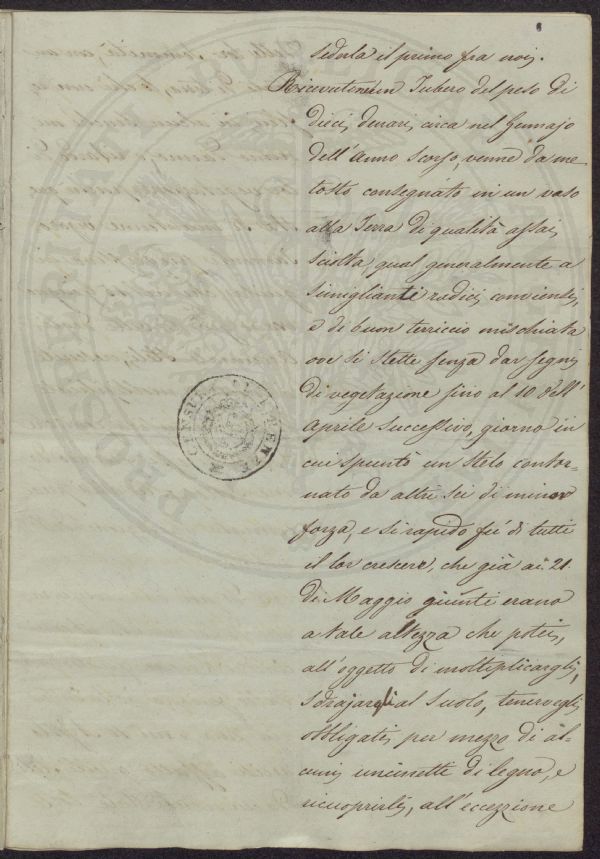 sederla il primo fra noi.
Ricevutone un Tubero del peso di
dieci denari circa nel Gennajo
dell'Anno scorso, venne da me
tosto consegnato in un vaso
alla Terra di qualità assai
sciolta, qual generalmente a
simiglianti radici conviensi,
e di buon terriccio mischiata
ove si stette senza dar segni
di vegetazione fino al 10 dell'
Aprile successivo, giorno in
cui spuntò un stelo contor-
nato da altri sei di minor
forza, e sì rapido fu di tutti
il lor crescere, che già ai 21
di Maggio giunti erano
a tale altezza che potei,
all'oggetto di moltiplicargli,
sdrajargli al suolo, tenervegli
obbligati per mezzo di al-
cuni uncinetti di legno, e
ricuoprirli, all'eccezzione
CONSULTA FIRENZE
PROS